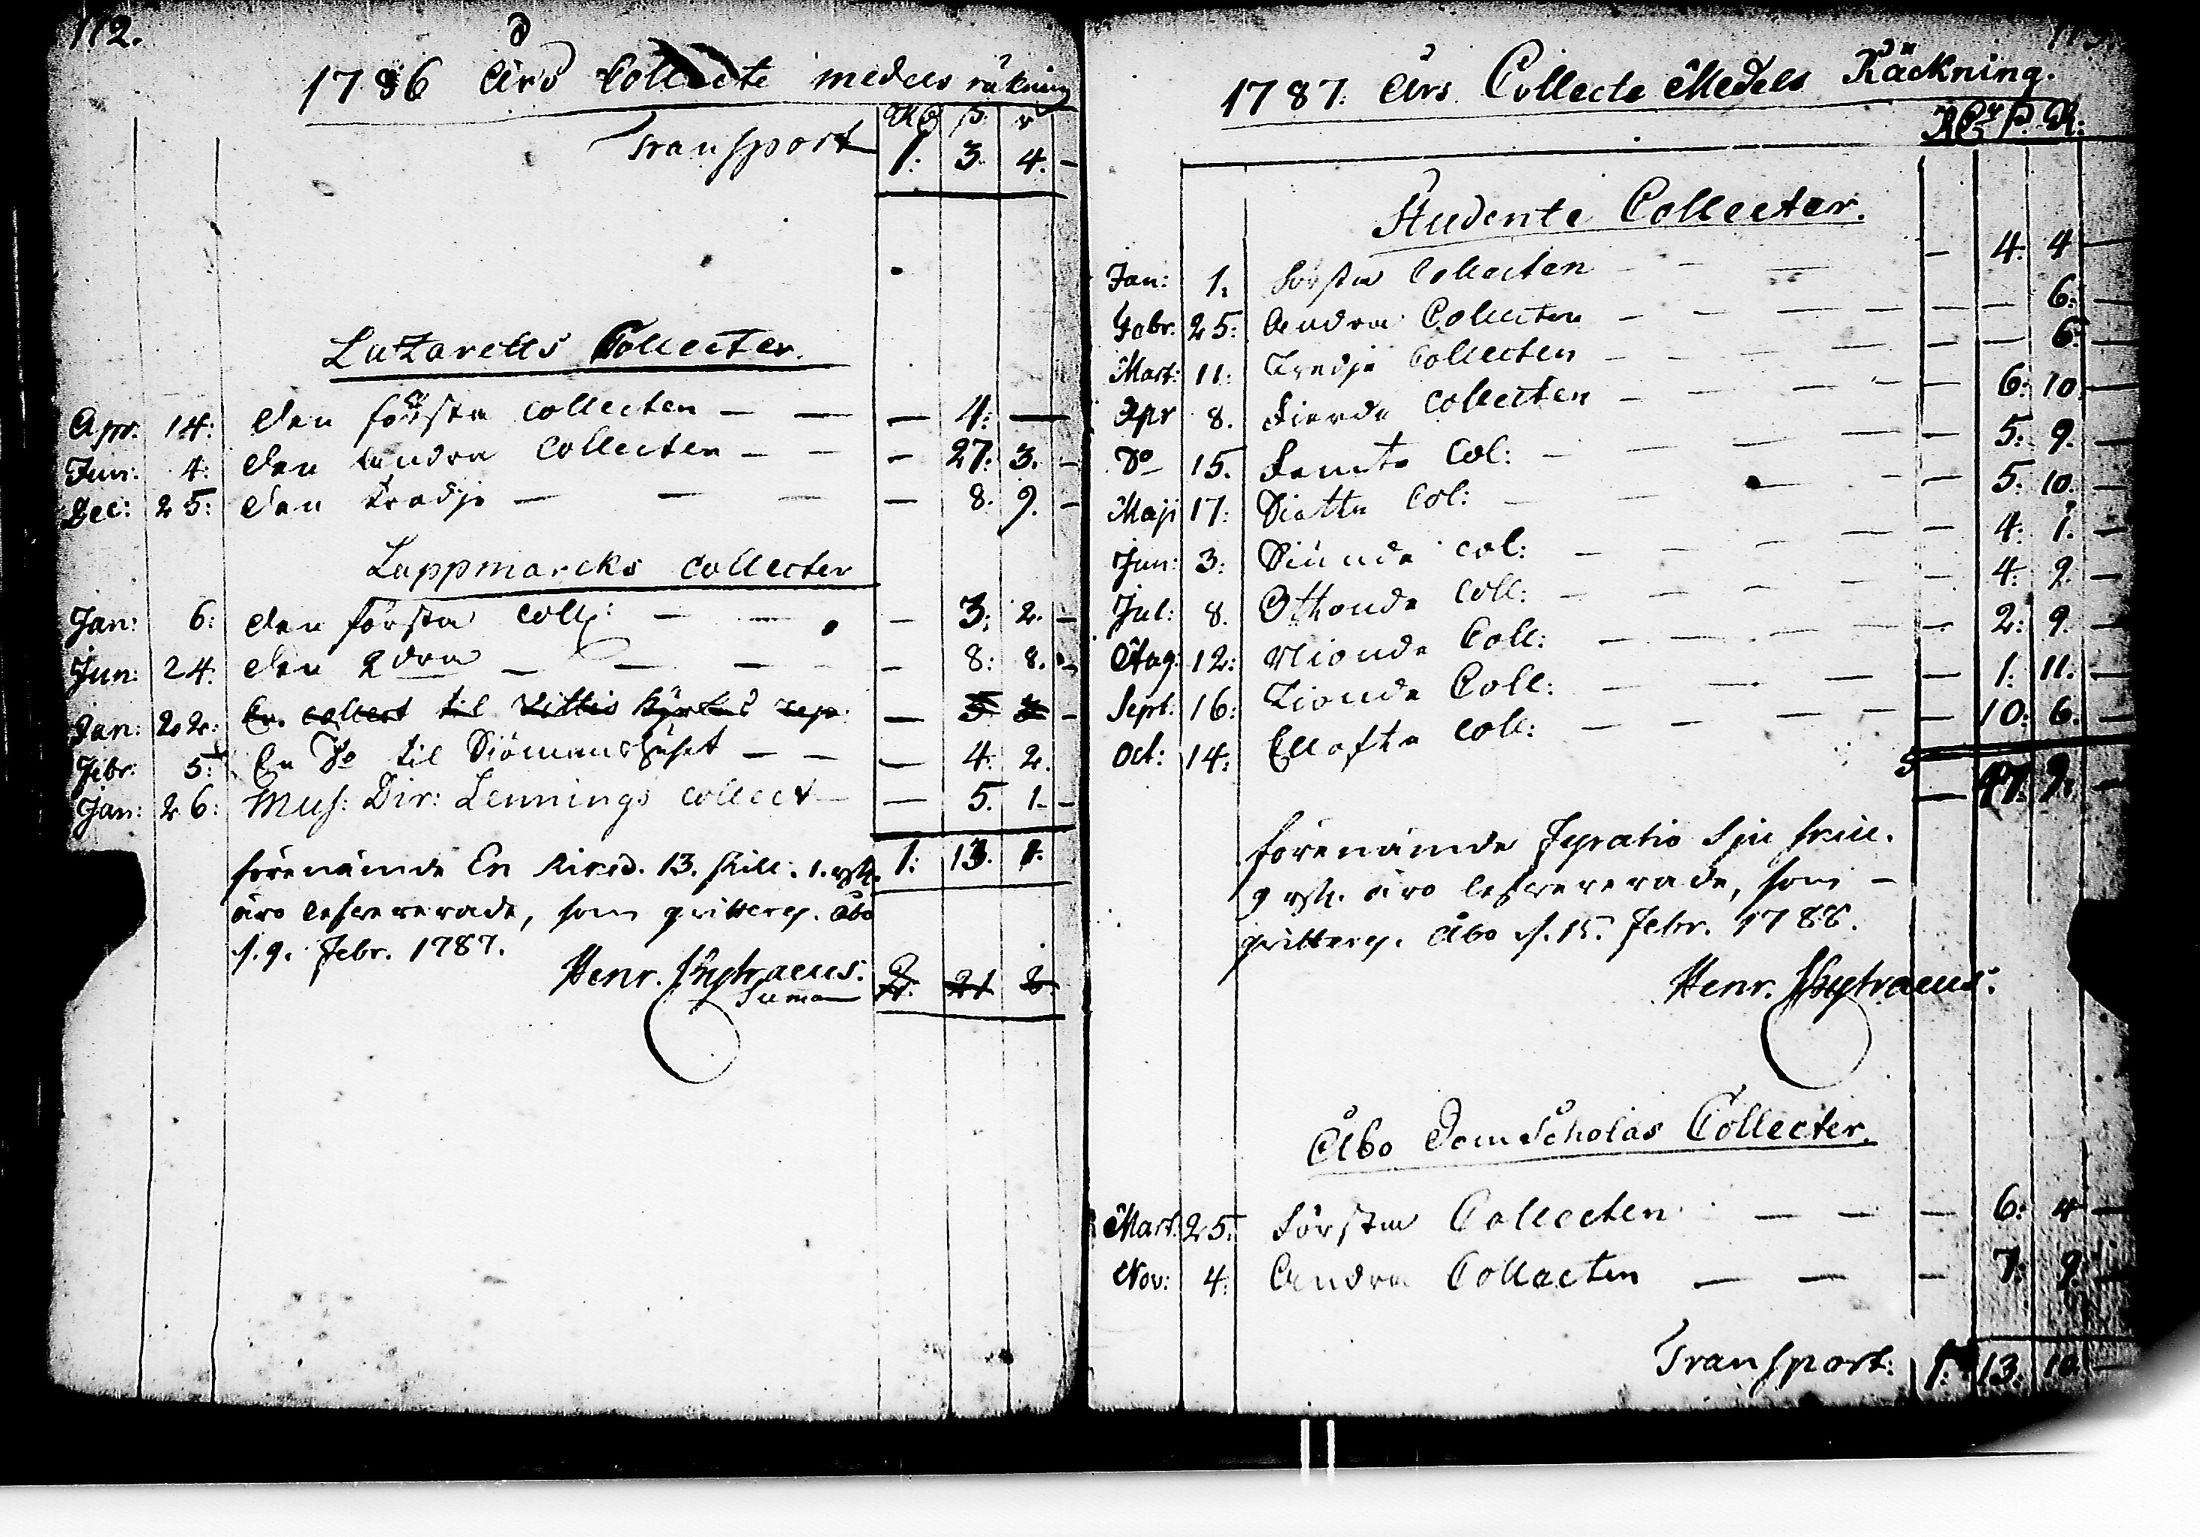 112.
1786 Års Collecte medels räkning
Rd ß. r
Transport 1. 3. 4. -
Lazaretts Collecter.
Apr. 14: den första collecten - - - 4: -
Jun: 4: den andra Collecten - - - 27: 3. -
Dec: 25: den tredje - - - - 8. 9. -
Lappmarcks collecter
Jan: 6: den första coll: - - - 3: 2. -
Jun: 24. den 2dra - - - - 8: 8. -
Jan: 22: En collect til Vittis kyrkas rep. - 5 -
Febr: 5: En Do til Siömanshuset - - - 4: 2.
Jan: 26: Mus: Dir: Lennings collect - - 5. 1. -
förenämde En Riksd. 13. skill. 1. rst. 1: 13. 1.
äro lefvererade, som qvitterer. Åbo
d. 9. Febr. 1787.
Henr. Lhystraeus.
Summa 21
1787. Års Collecte Medels Räckning.
Rdr ß. R:
Studente Collecter.
Jan: 1. Första Collecten - - - - 4. 4 -
Febr: 25: Andra Collecten - - - - - 6: -
Mart: 11: Tredje Collecten - - - - - 6. -
Apr 8. Fierde Collecten - - - - 6: 10. -
Do 15. Femte Col: - - - - 5: 9. -
Maji 17: Siette Col: - - - - 5. 10. -
Jun: 3: Siunde col: - - - - 4: 1. -
Jul: 8. Ottonde Coll: - - - - 4: 9. -
Aug: 12: Nionde Coll: - - - - 2: 9. -
Sept: 16: Tionde Coll: - - - - 1: 11. -
Oct: 14: Ellofte Coll: - - - - 10: 6. -
- 47. 9. -
förenämde Fyratio Sju skill.
9 rst. äro lefvererade, som -
qvitterer. Åbo d. 15. Febr. 1788.
Henr. Lhystraeus.
Åbo Dom Scholas Collecter.
Mart: 25. Första Collecten - - - 6: 4 -
Nov: 4: Andra Collecten - - - 7: 9. -
Transport: 1. 13. 10. -